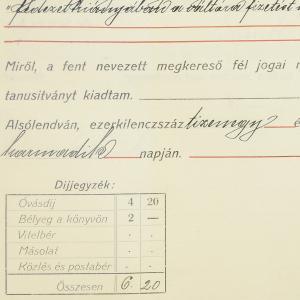 "Fedezet hiányában a váltóra fizetést
Miről, a fent nevezett megkereső fél jogai
tanusitványt kiadtam.
Alsólendván, ezerkilenczszáz tizenegy
harmadik napján.
Dijjegyzék:
Óvásdij 4 20
Bélyeg a könyvön 2 —
Vitelbér . .
Másolat . .
Közlés és postabér . .
Összesen 6. 20